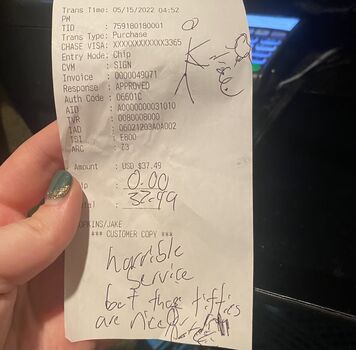 Trans Time: 05/15/2022 04:52
PM
TID : 759180180001
Trans Type: Purchase
CHASE VISA: XXXXXXXXXXXX3365
Entry Mode: Chip
CVM : SIGN
Invoice : 0000049071
Response : APPROVED
Auth Code : 06501C
AID : A0000000031010
TVR : 0080008000
IAD : 06021203A0A002
TSI : E800
ARC : Z3
Amount : USD $37.49
0.00
37.49
*** CUSTOMER COPY ***
horrible
service
but those titties
are nice